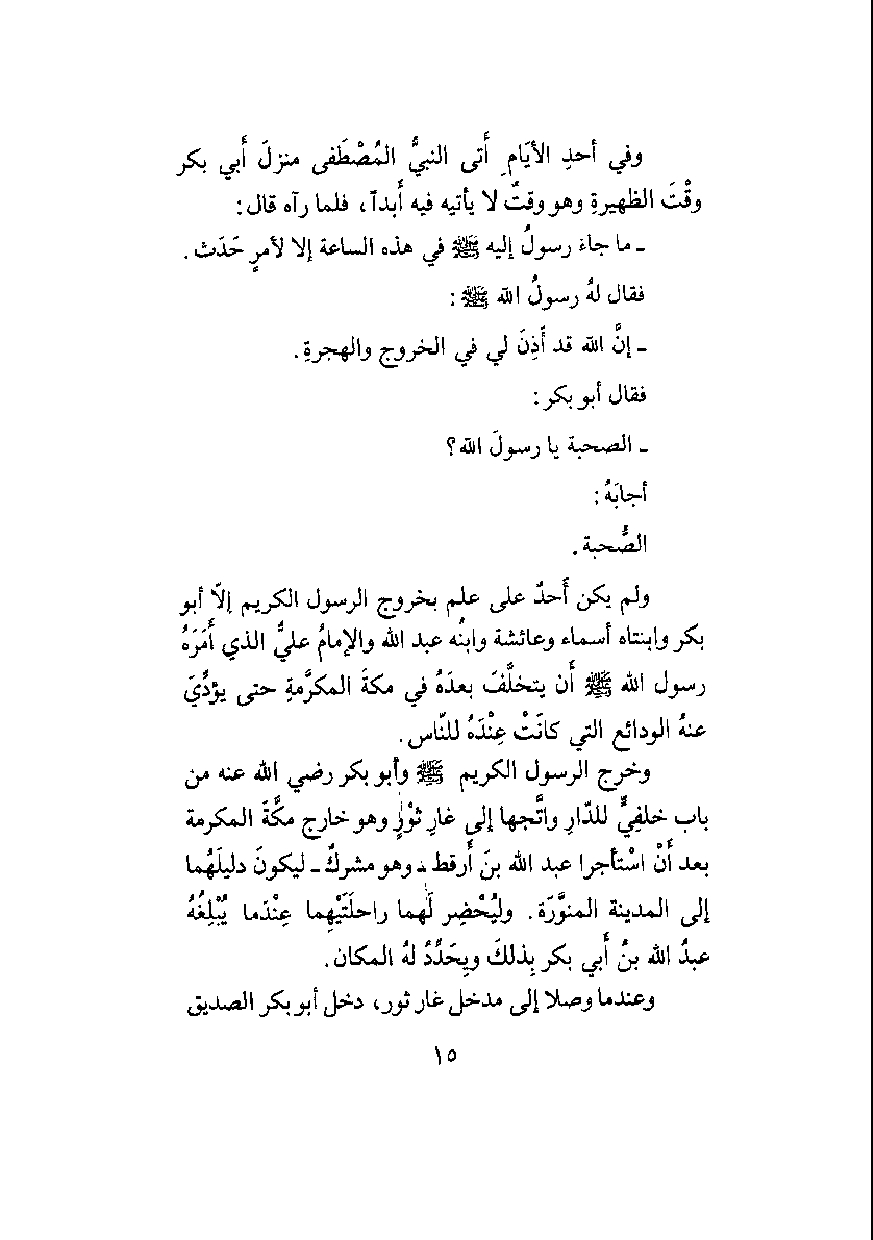 وفي أحدِ الأيَامِ أَتى النبيُّ المُصْطَفى منزلَ أَبي بكر
وقْتَ الظهيرةِ وهو وقتٌ لا يأتيه فيه أَبداً، فلما رآه قال:
ـ ما جاءَ رسولُ إليه ﷺ في هذه الساعة إلا لأمرٍ حَدَث.
فقال لهُ رسولُ الله ﷺ:
ـ إنَّ الله قد أَذِنَ لي في الخروج والهجرةِ.
فقال أبو بكر:
ـ الصحبة يا رسولَ الله؟
أجابَهُ:
الصُّحبة.
ولم يكن أَحدٌ على علم بخروج الرسول الكريم إلّا أبو
بكر وابنتاه أسماء وعائشة وابنُه عبد الله والإمامُ عليُّ الذي أَمَرَهُ
رسول الله ﷺ أَنْ يتخلَّفَ بعدَهُ في مكةَ المكرَّمةِ حتى يؤدِّيَ
عنهُ الودائع التي كانَتْ عِنْدَهُ للنّاس.
وخرج الرسول الكريم ﷺ وأبو بكر رضي الله عنه من
باب خلفيٍّ للدّارِ واتَّجها إلى غارِ ثوْرٍ وهو خارج مكَّةَ المكرمة
بعد أَنْ اسْتأجرا عبد الله بنَ أَرقط ـ وهو مشركٌ ـ ليكونَ دليلَهُما
إلى المدينة المنوَّرَة. وليُحْضِر لَهما راحلَتَيْهِما عِنْدَما يُبْلِغُهُ
عبدُ الله بنُ أَبي بكر بِذلكَ ويحَدِّدُ لهُ المكان.
وعندما وصلا إلى مدخل غار ثور، دخل أبو بكر الصديق
١٥